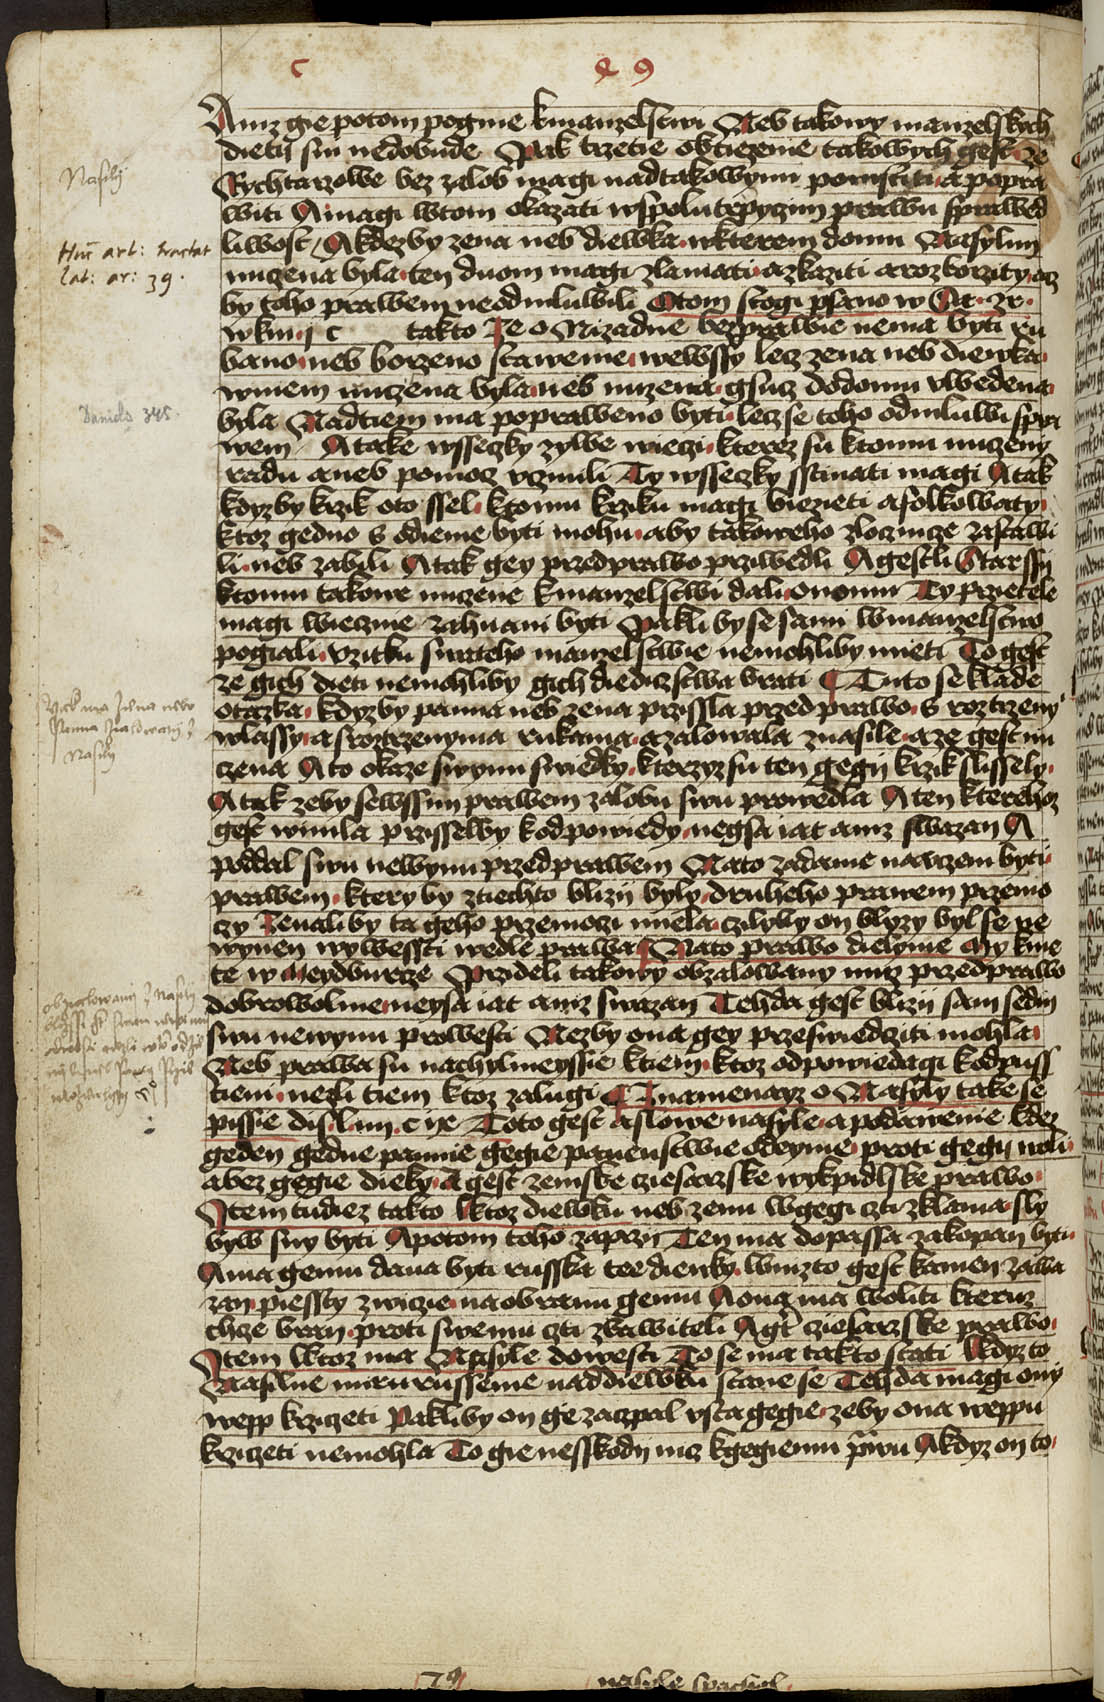 c & 9
Aniz gie potom pogme kmanzelstwi Neb takowy manzelskych
dietij sin nedobude Pak trzetie obtiezenie takowych gest ze
Rychtarzowe bez zalob magi nad takowymi pomstiti a popra
witi A magi wtom okazati wspolutrpyczim prawu sprawed
liwost A kdezby zena neb diewka wkterem domu Nasylim
nuczena byla ten duom magi zlamati a zkaziti a rozborzity acz
by toho prawem neodmluwili O tom stogi psano w Ar. zr.
wkm j c takto Ze o Nizadne bezprawie nema byti ru
bano neb borzeno stawenie wewssy lecz zena neb diewka
wniem nuczena byla neb nuzena gsucz dodomu vwedena
byla Nadtiem ma poprawено byti lecz se toho odmluwi spra
wem A take wsseczky zywe wieczi kterez su ktomu nuczeny
radu aneb pomoc vczinili Ty wsseczky sstinati magi A tak
kdyzby krzik oto ssel ktomu krziku magi biezieti a folkowaty
ktoz gedno s odienie byti mohu aby takoweho zloczincze zastawi
li neb zabili A tak gey przed prawo przwedli A gestli Starssij
ktomu takowe nuczenie kmanzelstwi dali onomu Ty przietele
magi wiecznie zahnani byti Pakliby se sami wmanzelstwo
pogiali vzitku swateho manzelstwie nemohliby mieti To gest
ze gich dieti nemohliby gich diediczstwa brati Tuto se klade
otazka kdyzby panna neb zena przissla przed prawo s roztrzeny
wlassy a s roztrzenyma rukama a zalowala z nasile a ze gest nu
czena A to okaze swymi swiedky kterzyz su ten gegij krzik slisseli
A tak zeby sewssim prawem zalobu swu prowedla A ten kterehoz
gest winila przisselby kodpowiedy negsa iat aniz swazan A
poddal swu newynu przed prawem Nato zadame nauczeni byti
prawem ktery by z tiechto blizij byly druheho prawem przemo
czy Zenaliby ta geho przemoczi miela czilyby on blyzy byl se ne
wynen wywessti wedle prawa Nato prawo dielyme My kme
te w Meydburcze Przideli takowy obzalowany muz przed prawo
dobrowolnie neysa iat aniz swazan Tehda gest blizij sam sedm
swu newynu prowesti Nezby ona gey przeswiedcziti mohla
Neb prawa su nachylneyssie ktiem ktoz odpowiedagi kodpuss
tieni nezli tiem ktoz zalugi Znamenayz o Nasyly take se
pissie dis. l. im. c ix Toto gest a slowe nasyle a podawenie kdez
geden gedne pannie gegie panenstwie odeyme proti gegij woli
a bez gegie dieky A gest zemske cziesarzske wykpidlske prawo
Item tudiez takto Ktoz diewku neb zenu wgegi czti zklama sly
byw sny byti A potom toho zaprzi Ten ma dopassa zakopan byti
A ma gemu dana byti russka tee diewky wnizto gest kamen zawa
zan piessty zwiczie na obranu gemu A ona ma woliti kteruz
chcze bran proti swemu czti zbawiteli A gt cziesarzske prawo
Item Ktoz ma Nasyle dowesti To se ma takto stati Kdyz to
Nasylne miru russenie nad diewku stane se Tehda magi oni
wepp krziczeti Pakliby on gie zaczpal vsta gegie zeby ona weppu
krziczeti nemohla To gie nesskodij nicz kgegiemu prawu A kdyz on to
Nasily
Hui9 art: tractat
lat: ar: 39.
Daniels 345.
nasyle spachal